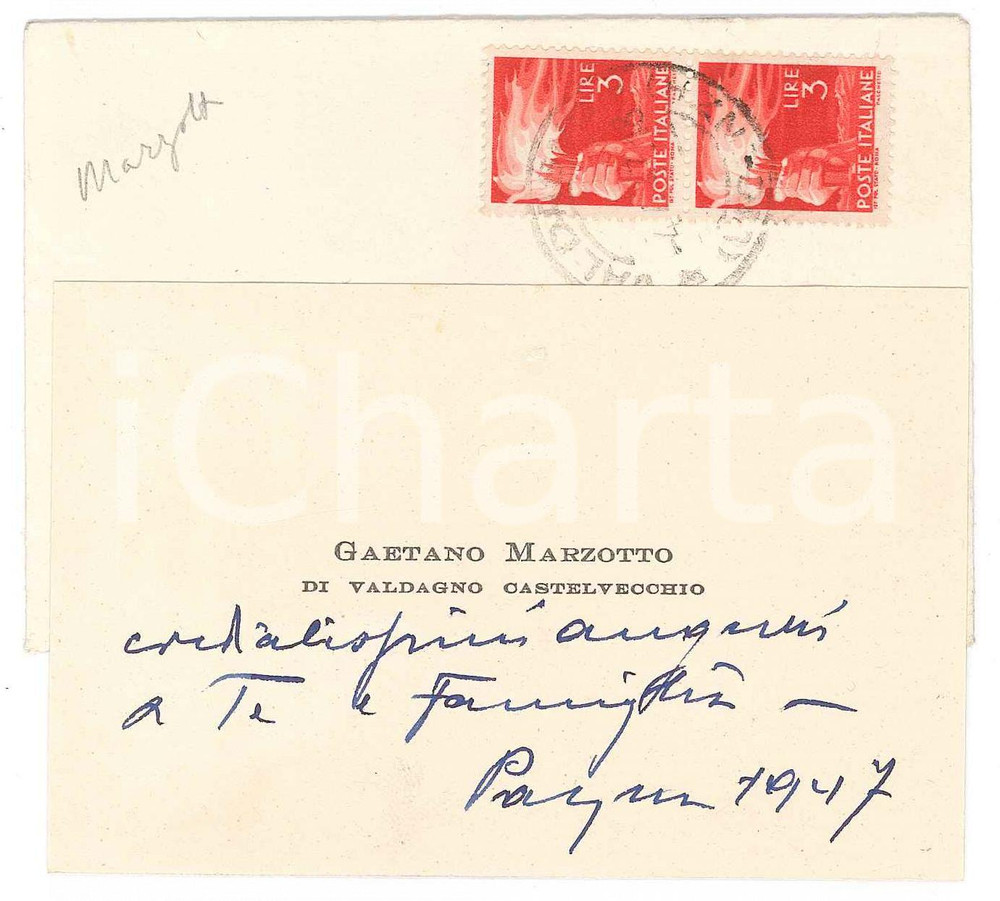 Marzott
LIRE 3
POSTE ITALIANE
LIRE 3
POSTE ITALIANE
iCharta
GAETANO MARZOTTO
DI VALDAGNO CASTELVECCHIO
cordialissimi auguri
a Te e Famiglia —
Pasqua 1947